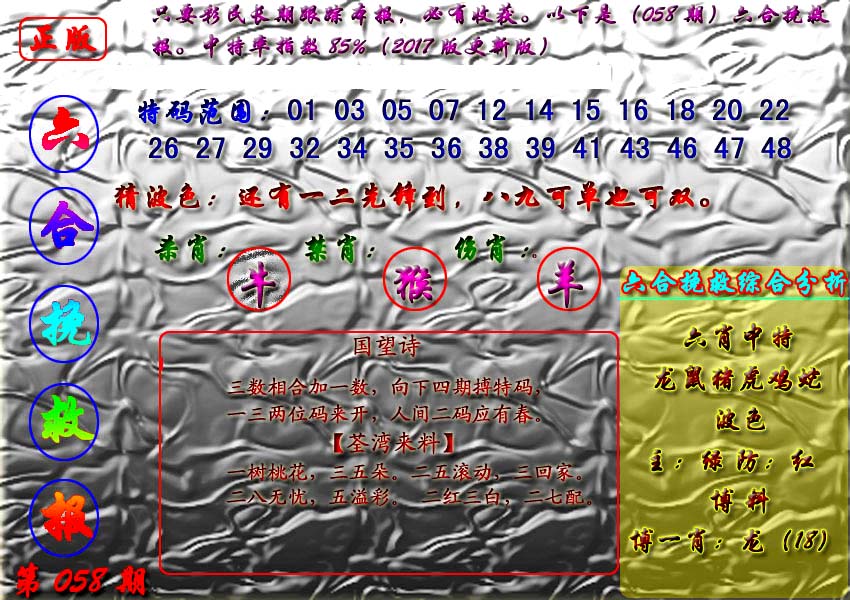 正版
只要彩民长期跟踪本报，必有收获。以下是（058期）六合挽救
报。中特率指数85%（2017版更新版）
六合挽救报
第058期
特码范围：01 03 05 07 12 14 15 16 18 20 22
26 27 29 32 34 35 36 38 39 41 43 46 47 48
猜波色：还有一二先锋到，八九可单也可双。
杀肖：牛 禁肖：猴 伤肖：。羊
国望诗
三数相合加一数，向下四期搏特码，
一三两位码来开，人间二码应有春。
【荃湾来料】
一树桃花，三五朵。二五滚动，三回家。
二八无忧，五溢彩。 二红三白，二七配。
六合挽救综合分析
六肖中特
龙鼠猪虎鸡蛇
波色
主：绿防：红
博料
博一肖：龙（18）